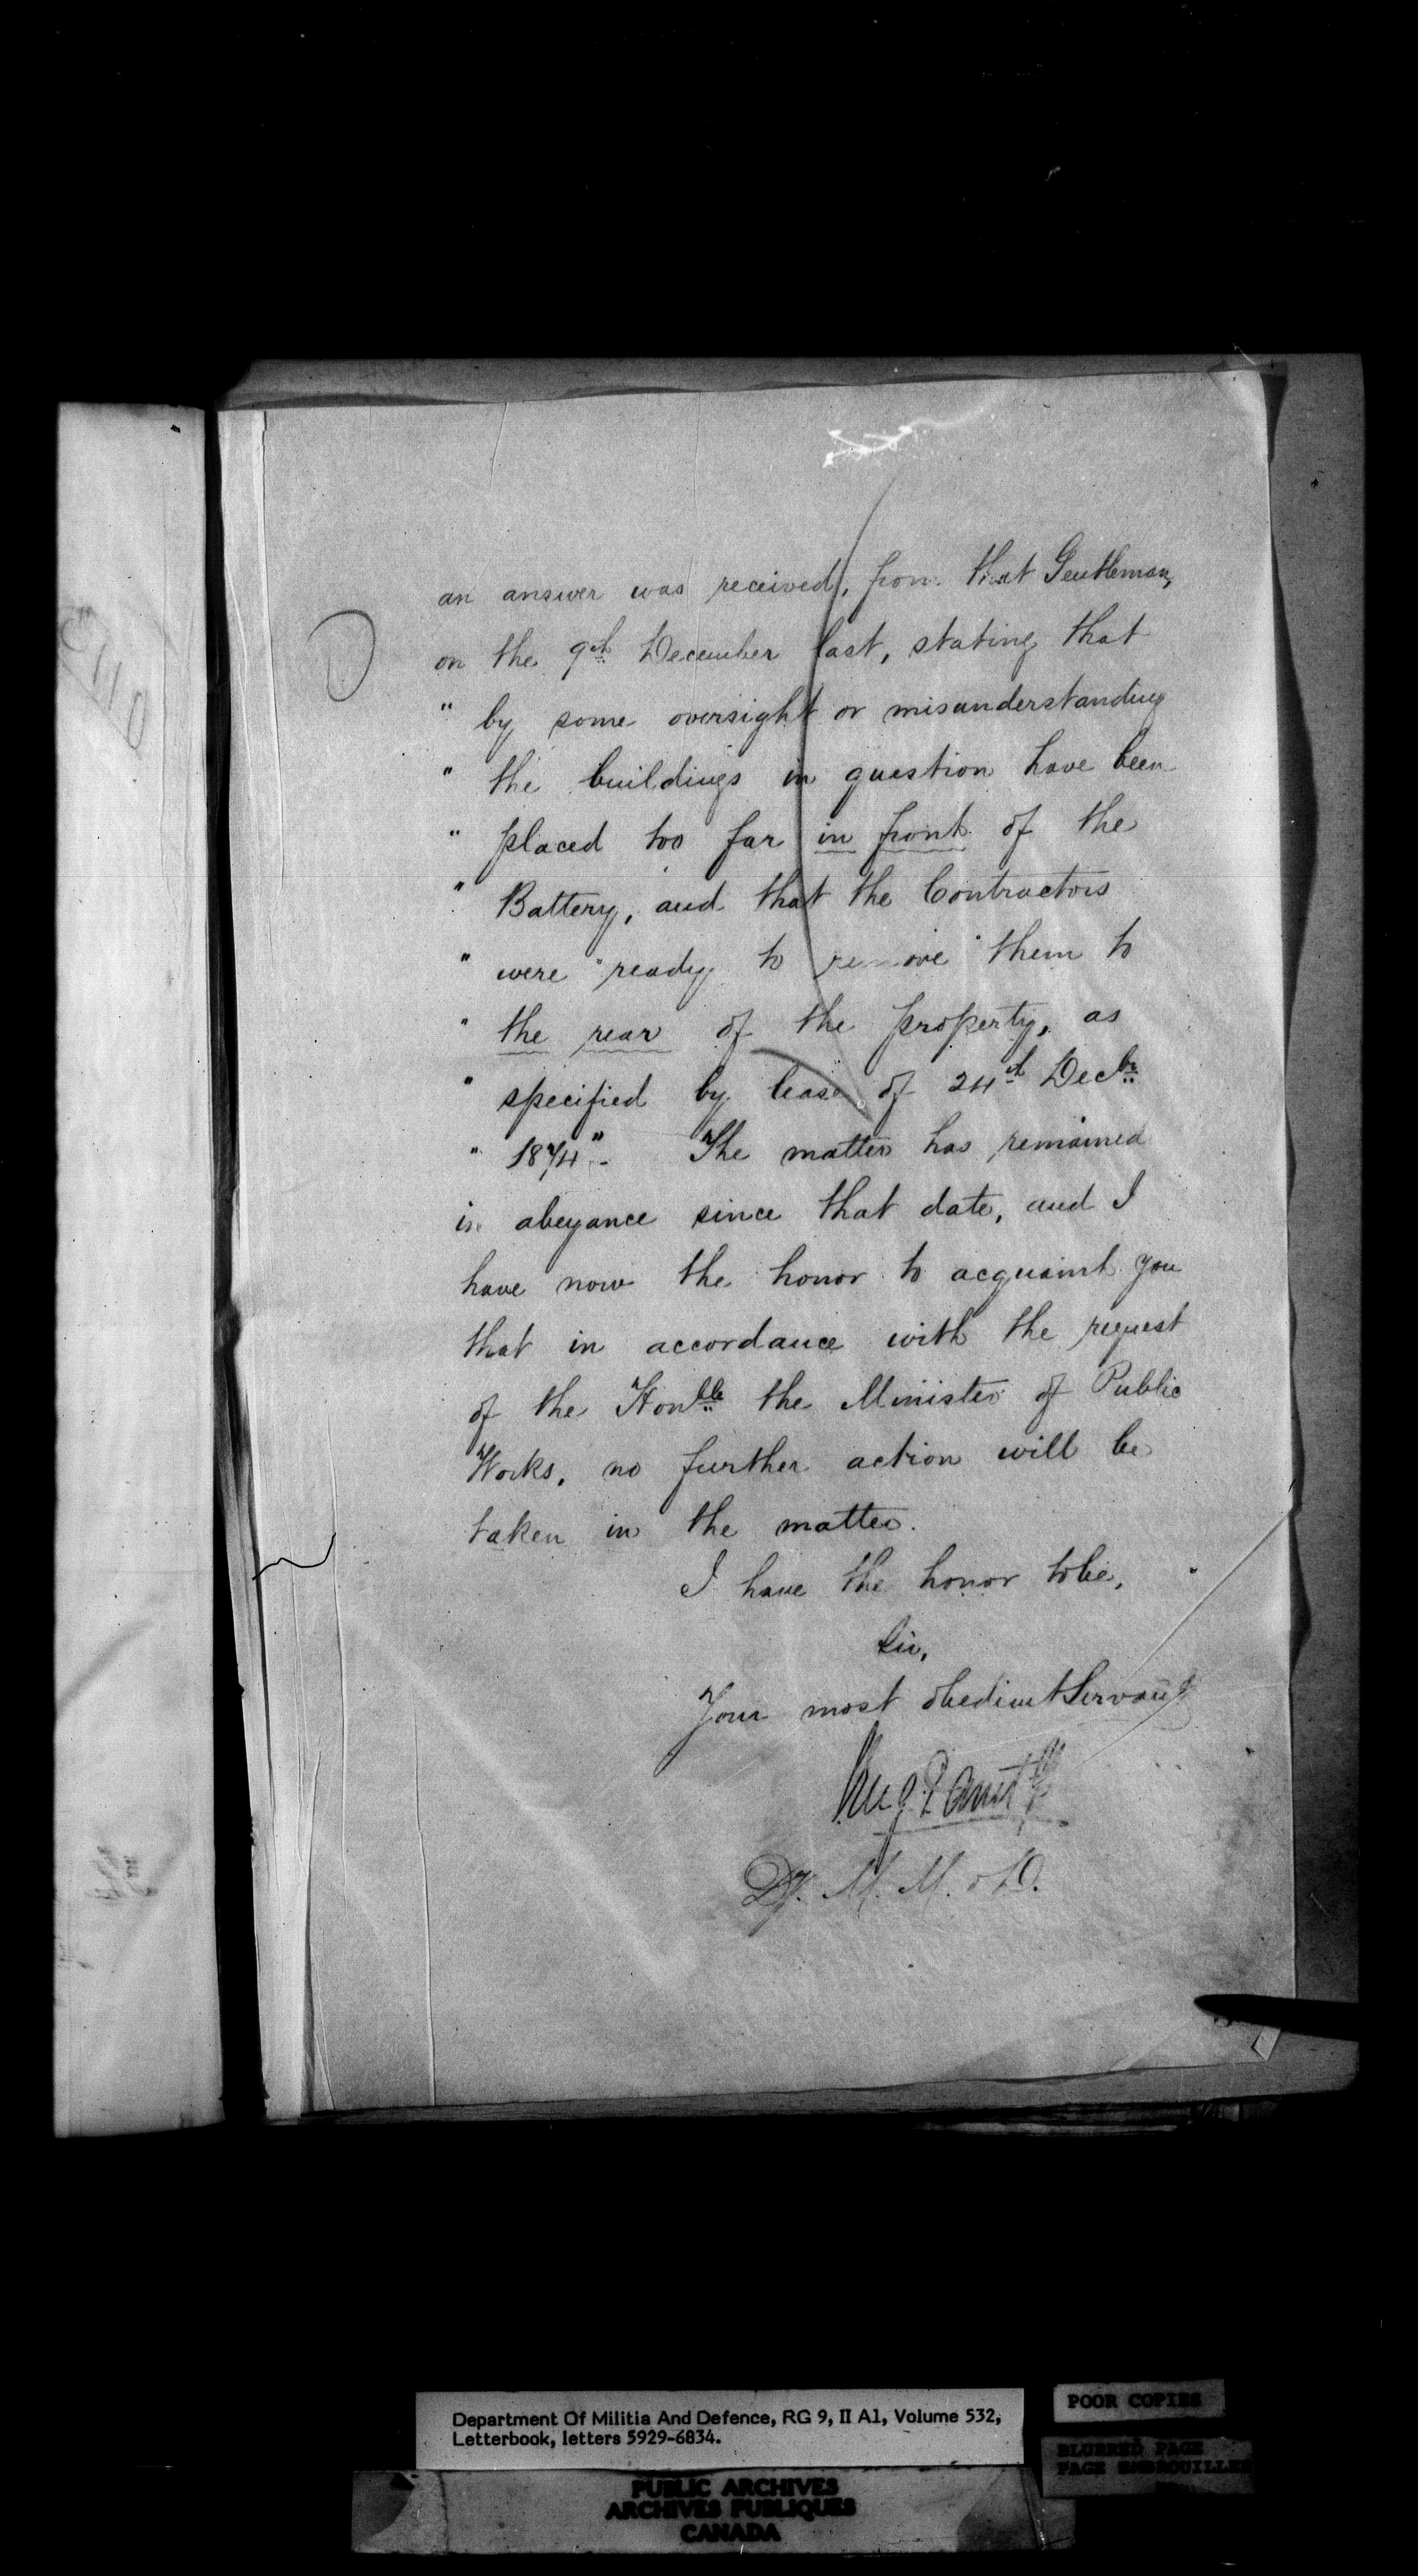 an answer was received, from that Gentleman,
on the 9th December last, stating that
" by some oversight or misunderstanding
" the buildings in question have been
" placed too far in front of the
" Battery, and that the Contractors
" were "ready to remove" them to
" the rear of the property, as
" specified by lease of 24th Decbr
" 1874". The matter has remained
in abeyance since that date, and I
have now the honor to acquaint you
that in accordance with the request
of the Honble the Minister of Public
Works, no further action will be
taken in the matter.
I have the honor to be,
Sir,
Your most obedient Servant
Dy. M. M. & D.
Department Of Militia And Defence, RG 9, II A1, Volume 532,
Letterbook, letters 5929-6834.
POOR COPIES
BLURRED PAGE
PAGE EMBROUILLEE
PUBLIC ARCHIVES
ARCHIVES PUBLIQUES
CANADA